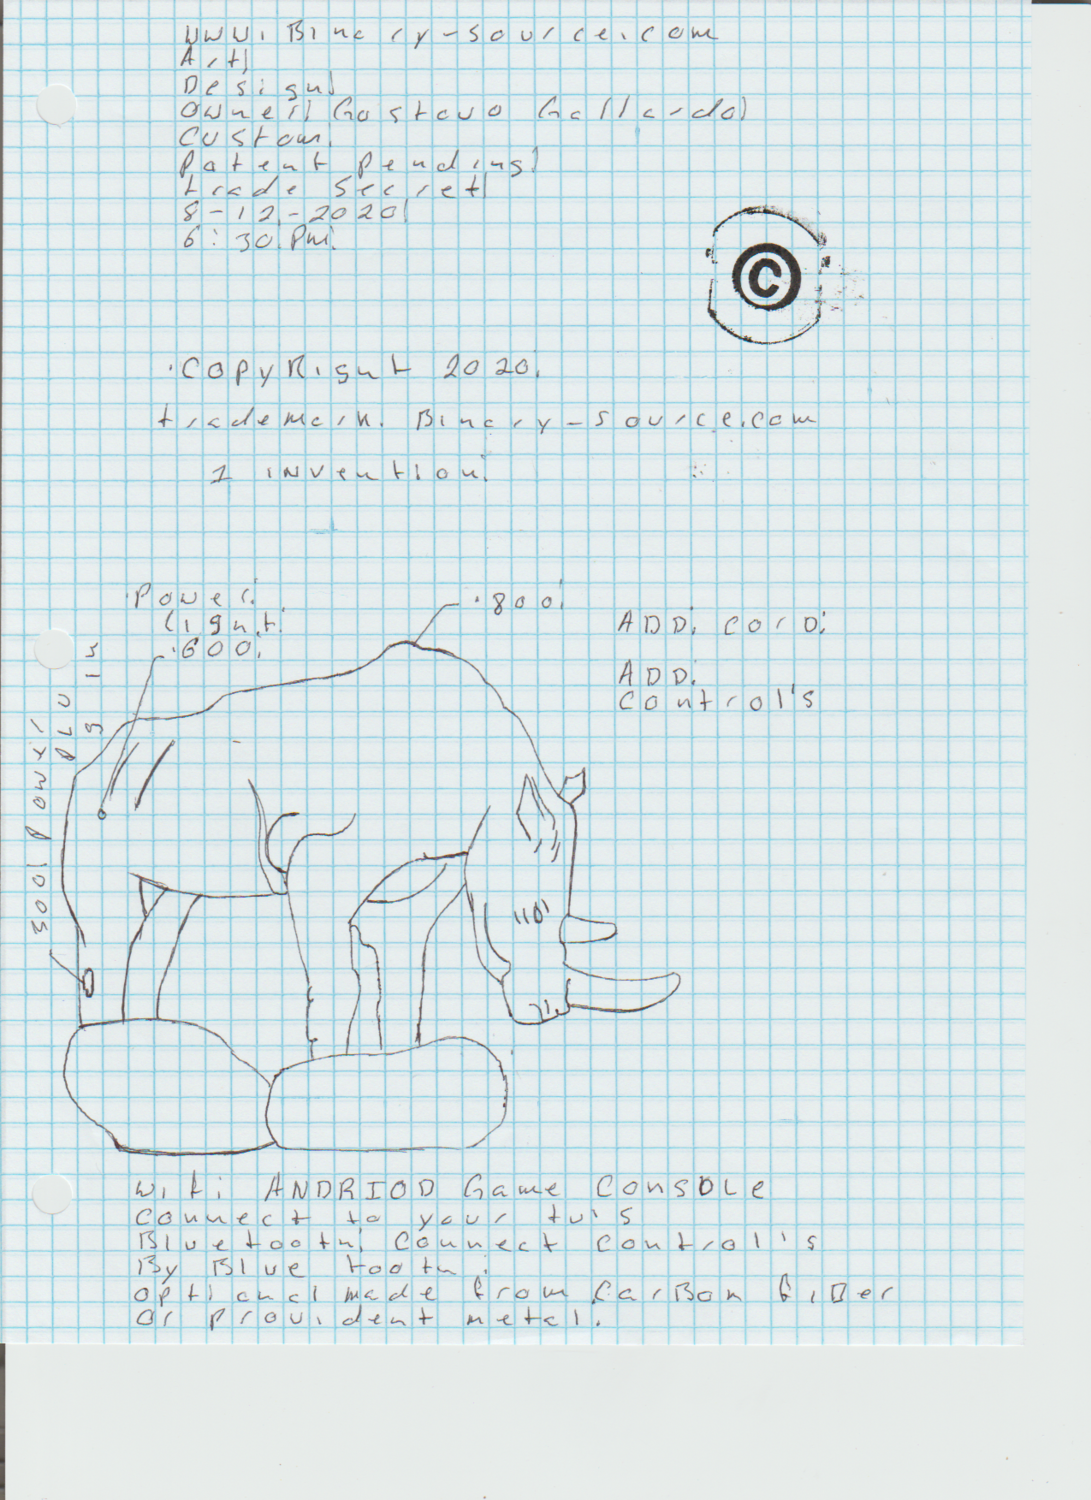 www. Binary-source.com
Art
Design.
Owner Gostavo Gallardo
Custom.
Patent Pending.
trade secret
8-12-2020
6:30 Pm.
©
.CopyRight 2020.
trademark. Binary-source.com
1 invention.
.Power.
Light.
.600.
.800.
ADD. cord.
ADD.
control's
300 Power
PLU
g in
Wifi ANDRIOD Game Console
connect to your tv's
Bluetooth. Connect control's
By Blue tooth.
optional made from CarBon fiBer
or provident metal.